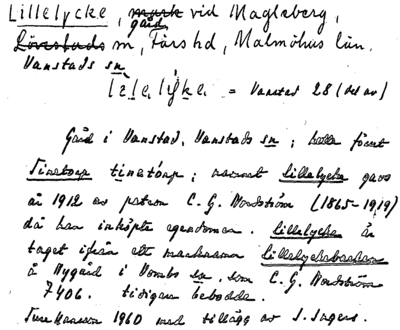 Lillelycke, mark gård vid Magleberg,
Lövestads m, Färs hd, Malmöhus län.
Vanstads sn
= Vanstad 28 (del av)
Gård i Vanstad, Vanstads sn; kalla förut
Tinetorp tinetórp; namnet Lillelycke gavs
år 1912 av patron C. G. Nordström (1865-1919)
då han inköpte egendomen. Lillelycke är
taget ifrån ett marknamn Lillelyckebacken
å Nygård i Vombs sn, som C. G. Nordström
7406. tidigare bebodde.
Ture Hansson 1960 med tillägg av I. Ingers.